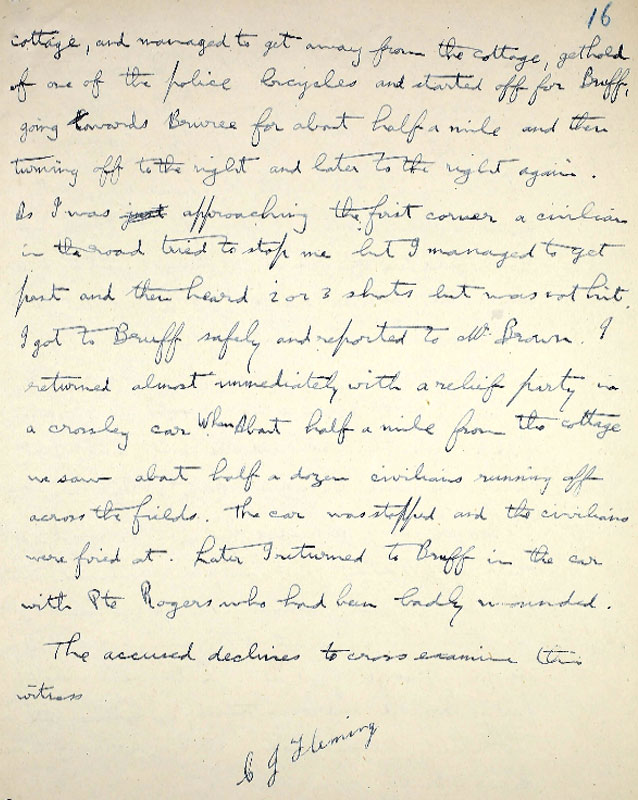 16
cottage, and managed to get away from the cottage, gethold
of one of the police bicycles and started off for Bruff,
going towards Bruree for about half a mile and then
turning off to the right and later to the right again.
As I was just approaching the first corner a civilian
in the road tried to stop me but I managed to get
past and then heard 2 or 3 shots but was not hit.
I got to Bruff safely and reported to Mr Brown. I
returned almost immediately with a relief party in
a crossley car When About half a mile from the cottage
we saw about half a dozen civilians running off
across the fields. The car was stopped and the civilians
were fired at. Later I returned to Bruff in the car
with Pte Rogers who had been badly wounded.
The accused declines to cross examine this
witness
C J Fleming